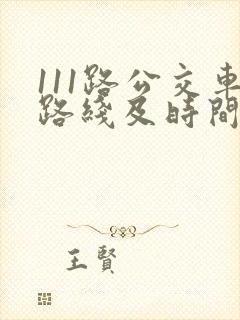 111路公交車
路綫及時間
王賢